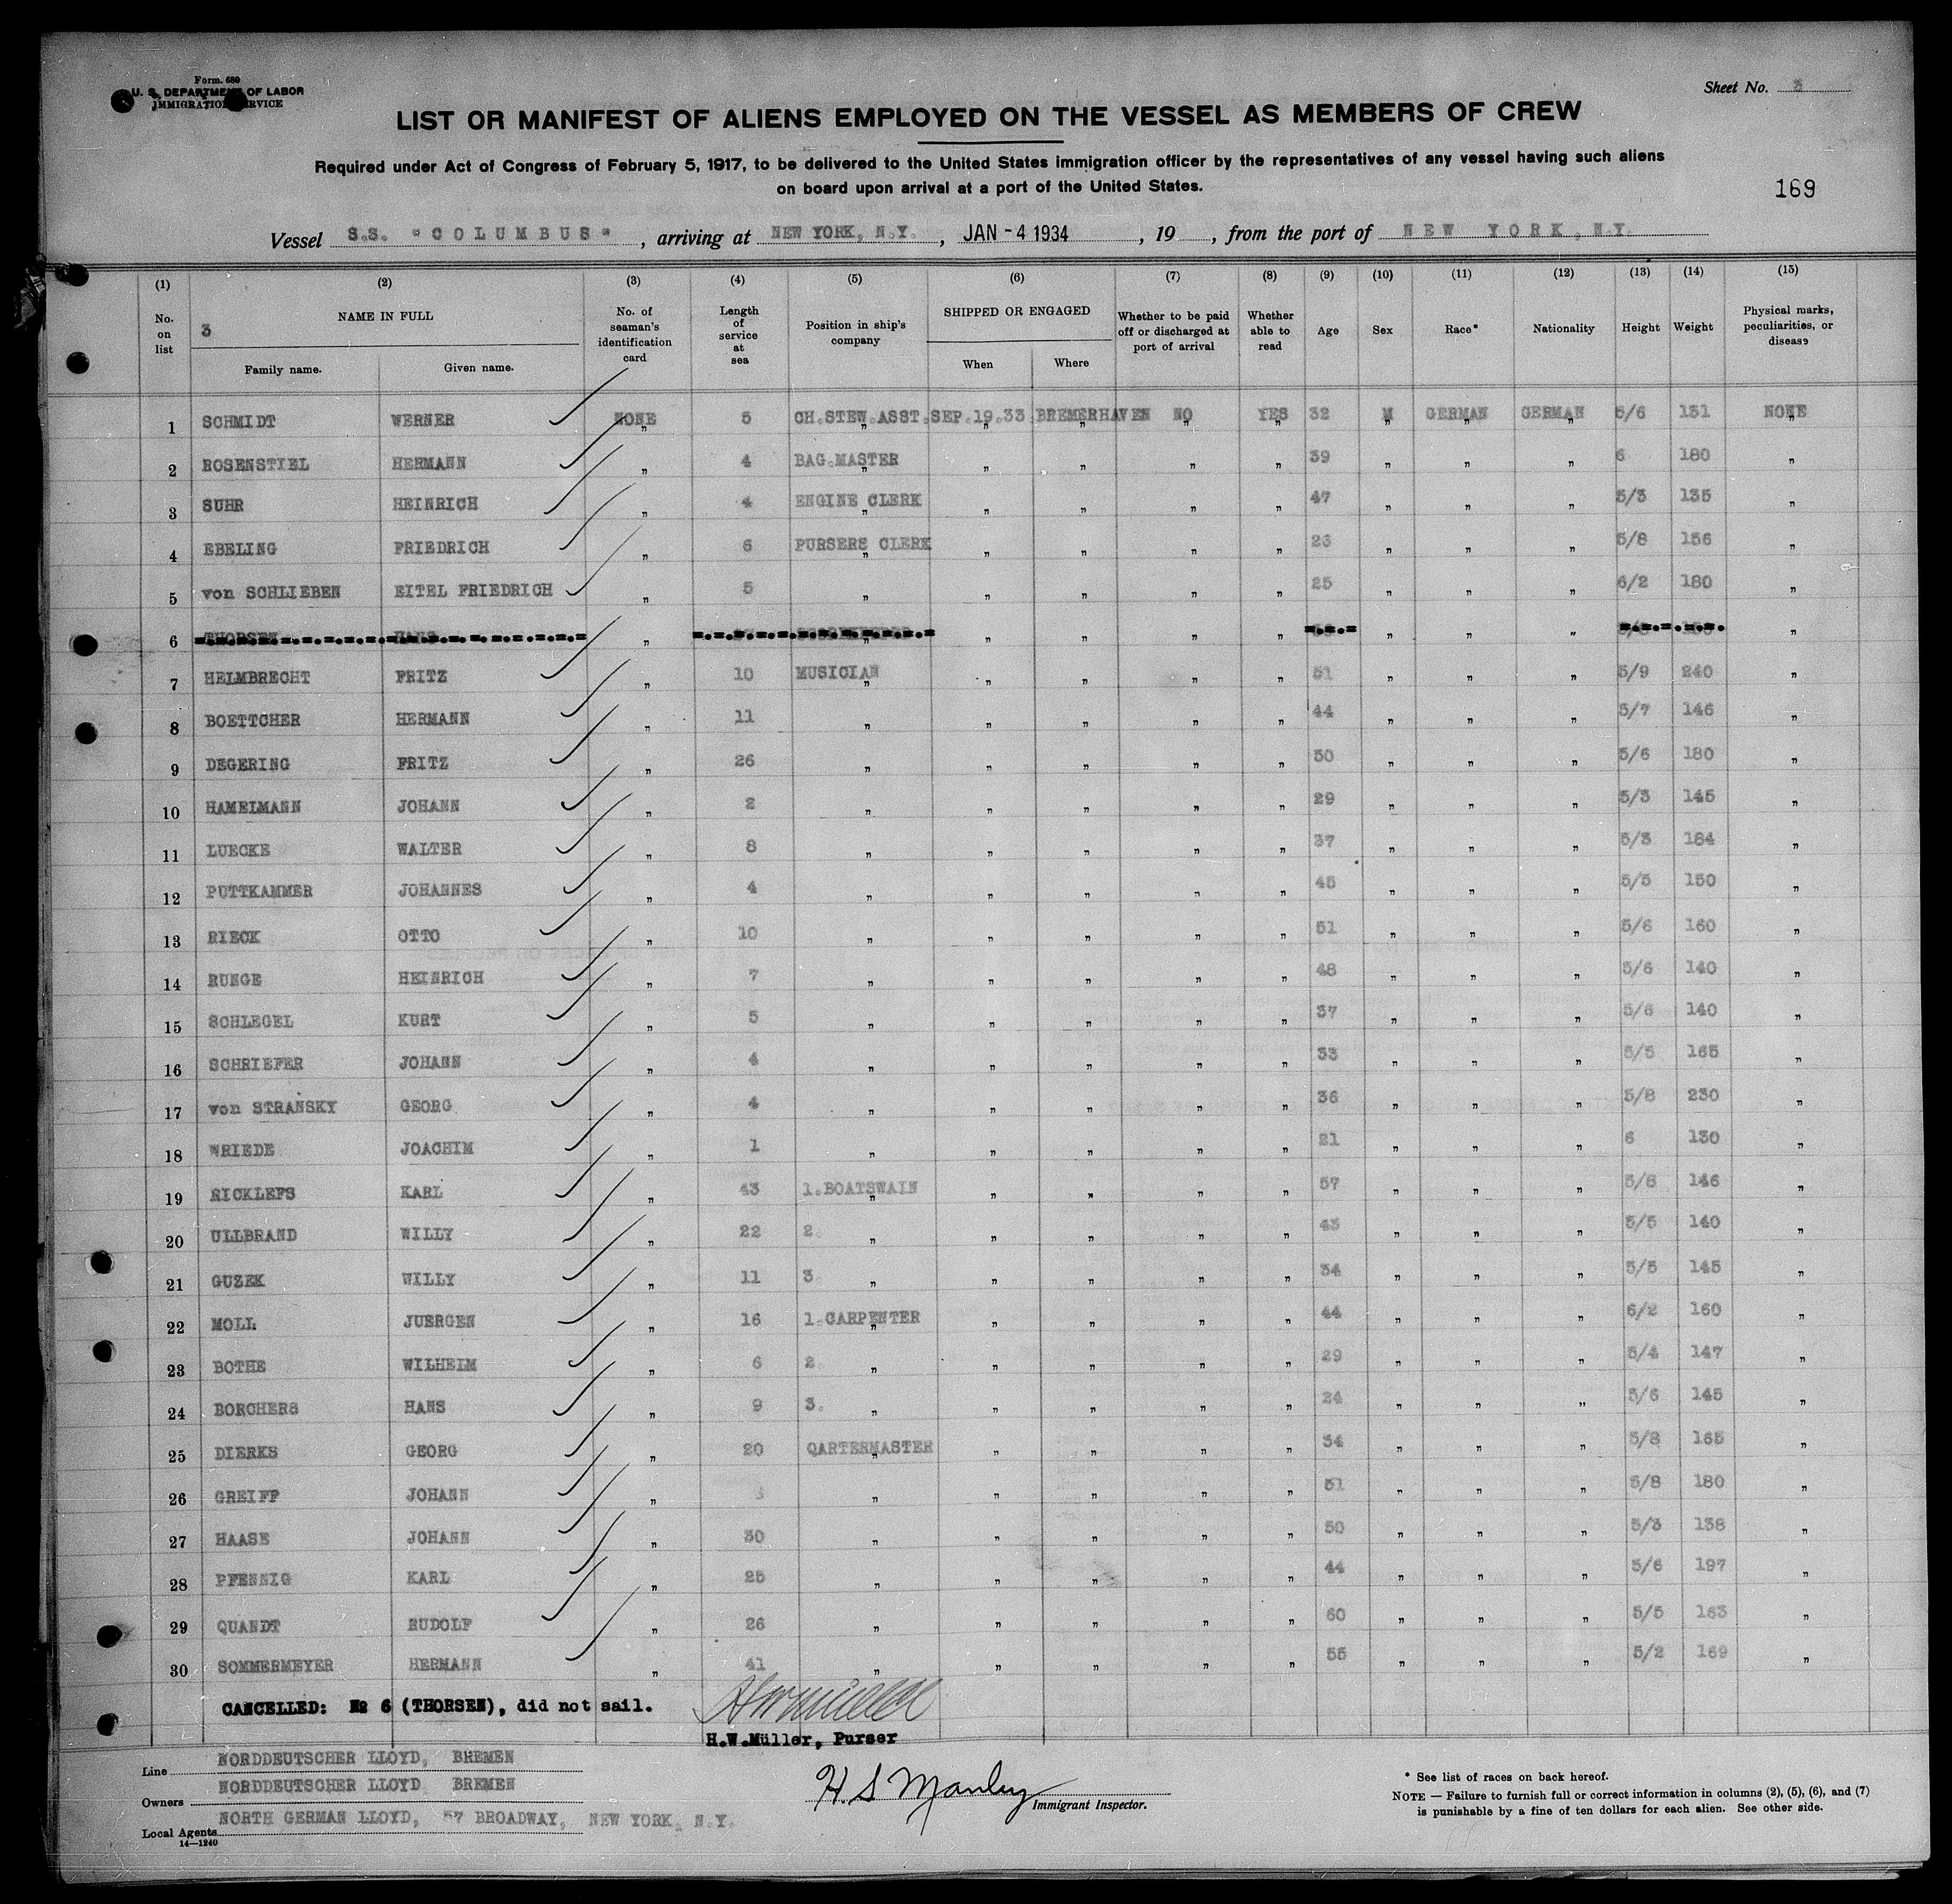 Form. 680
U. S. DEPARTMENT OF LABOR
IMMIGRATION SERVICE
Sheet No. 3
LIST OR MANIFEST OF ALIENS EMPLOYED ON THE VESSEL AS MEMBERS OF CREW
Required under Act of Congress of February 5, 1917, to be delivered to the United States immigration officer by the representatives of any vessel having such aliens
on board upon arrival at a port of the United States.
169
Vessel S.S. "COLUMBUS" , arriving at NEW YORK, N.Y. , JAN -4 1934 , 19 , from the port of NEW YORK, N.Y.
(1) (2) (3) (4) (5) (6) (7) (8) (9) (10) (11) (12) (13) (14) (15)
No. on list 3 NAME IN FULL Family name. Given name. No. of seaman's identification card Length of service at sea Position in ship's company SHIPPED OR ENGAGED When Where Whether to be paid off or discharged at port of arrival Whether able to read Age Sex Race* Nationality Height Weight Physical marks, peculiarities, or disease
1 SCHMIDT WERNER NONE 5 CH.STEW.ASST. SEP.19.33 BREMERHAVEN NO YES 32 M GERMAN GERMAN 5/6 131 NONE
2 ROSENSTIEL HERMANN " 4 BAG.MASTER " " " " 39 " " " 6 180 "
3 SUHR HEINRICH " 4 ENGINE CLERK " " " " 47 " " " 5/3 135 "
4 EBELING FRIEDRICH " 6 PURSERS CLERK " " " " 26 " " " 5/8 156 "
5 von SCHLIEBEN EITEL FRIEDRICH " 5 " " " " " 25 " " " 6/2 180 "
6 THORSEN HANS " " " " " " " " "
7 HELMBRECHT FRITZ " 10 MUSICIAN " " " " 51 " " " 5/9 240 "
8 BOETTCHER HERMANN " 11 " " " " " 44 " " " 5/7 146 "
9 DEGERING FRITZ " 26 " " " " " 50 " " " 5/6 180 "
10 HAMELMANN JOHANN " 2 " " " " " 29 " " " 5/3 145 "
11 LUECKE WALTER " 8 " " " " " 37 " " " 5/3 184 "
12 PUTTKAMMER JOHANNES " 4 " " " " " 45 " " " 5/5 150 "
13 RIECK OTTO " 10 " " " " " 51 " " " 5/6 160 "
14 RUNGE HEINRICH " 7 " " " " " 48 " " " 5/6 140 "
15 SCHLEGEL KURT " 5 " " " " " 37 " " " 5/6 140 "
16 SCHRIEFER JOHANN " 4 " " " " " 33 " " " 5/5 165 "
17 von STRANSKY GEORG " 4 " " " " " 36 " " " 5/8 230 "
18 WRIEDE JOACHIM " 1 " " " " " 21 " " " 6 130 "
19 RICKLEFS KARL " 43 1.BOATSWAIN " " " " 57 " " " 5/8 146 "
20 ULLBRAND WILLY " 22 2. " " " " " 43 " " " 5/5 140 "
21 GUZEK WILLY " 11 3 " " " " " 34 " " " 5/5 145 "
22 MOLL JUERGEN " 16 1.CARPENTER " " " " 44 " " " 6/2 160 "
23 BOTHE WILHELM " 6 2 " " " " " 29 " " " 5/4 147 "
24 BORCHERS HANS " 9 3. " " " " " 24 " " " 5/6 145 "
25 DIERKS GEORG " 20 QARTERMASTER " " " " 34 " " " 5/8 165 "
26 GREIFF JOHANN " " " " " " 51 " " " 5/8 180 "
27 HAASE JOHANN " 30 " " " " " 50 " " " 5/3 138 "
28 PFENNIG KARL " 25 " " " " " 44 " " " 5/6 197 "
29 QUANDT RUDOLF " 26 " " " " " 60 " " " 5/5 163 "
30 SOMMERMEYER HERMANN " 41 " " " " " 55 " " " 5/2 169 "
CANCELLED: № 6 (THORSEN), did not sail.
H.W.Müller, Purser
Line NORDDEUTSCHER LLOYD, BREMEN
Owners NORDDEUTSCHER LLOYD BREMEN
Local Agents NORTH GERMAN LLOYD, 57 BROADWAY, NEW YORK, N.Y.
14—1240
H S Manley Immigrant Inspector.
* See list of races on back hereof.
NOTE — Failure to furnish full or correct information in columns (2), (5), (6), and (7)
is punishable by a fine of ten dollars for each alien. See other side.